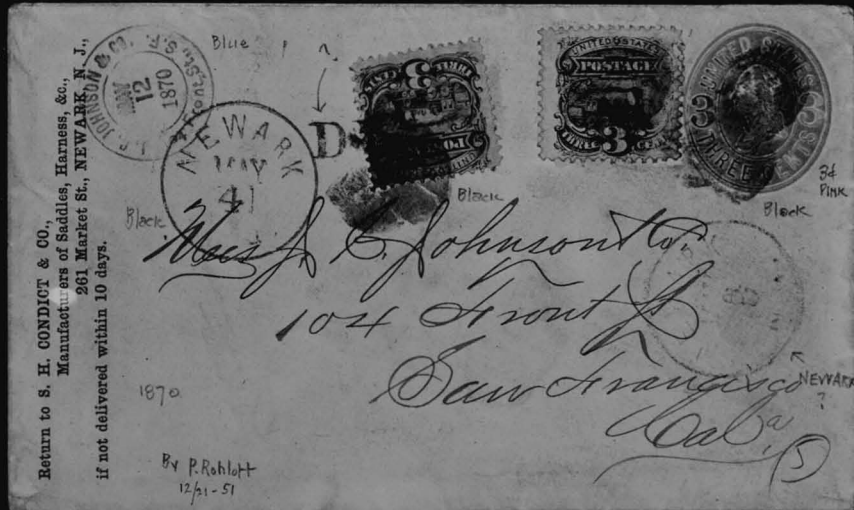 Return to S. H. CONDICT & CO.,
Manufacturers of Saddles, Harness, &c.,
261 Market St., NEWARK, N. J.,
if not delivered within 10 days.
JOHNSON & CO. S.F.
MAY
12
1870
Blue
?
NEWARK
MAY
41
D
Black
Black
UNITED STATES
POSTAGE
3
UNITED STATES
THREE CENTS
3
3
3¢
PINK
Black
Mess J. C. Johnson & Co.
104 Front St
San Francisco
Cala
5
NEWARK
?
1870
By P. Rohloff
12/21-51